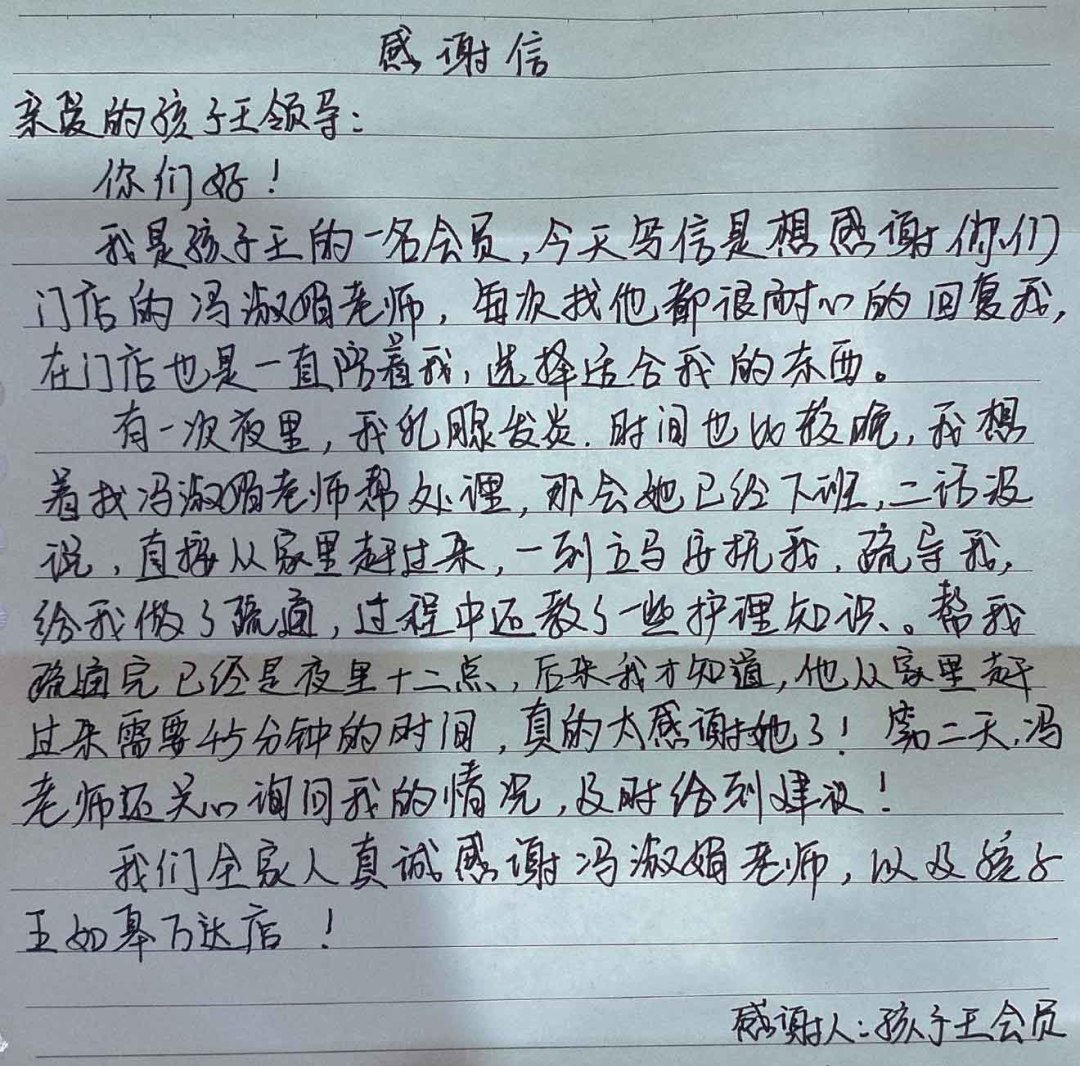 感谢信
亲爱的孩子王领导：
你们好！
我是孩子王的一名会员，今天写信是想感谢你们
门店的冯淑娟老师，每次找他都很耐心的回复我，
在门店也是一直陪着我，选择适合我的东西。
有一次夜里，我乳腺发炎．时间也比较晚，我想
着找冯淑娟老师帮处理，那会她已经下班，二话没
说，直接从家里赶过来，一到立马安抚我，疏导我，
给我做了疏通，过程中还教了一些护理知识。帮我
疏通完已经是夜里十二点，后来我才知道，他从家里赶
过来需要45分钟的时间，真的太感谢她了！第二天，冯
老师还关心询问我的情况，及时给到建议！
我们全家人真诚感谢冯淑娟老师，以及孩子
王如皋万达店！
感谢人：孩子王会员